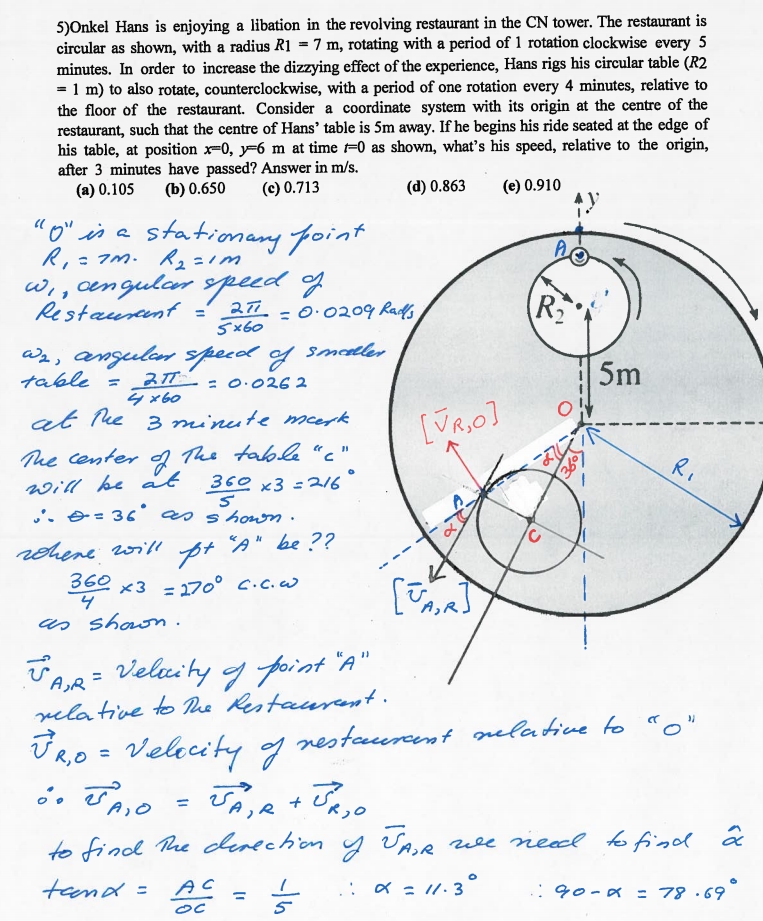 5)Onkel Hans is enjoying a libation in the revolving restaurant in the CN tower. The restaurant is
circular as shown, with a radius R1 = 7 m, rotating with a period of 1 rotation clockwise every 5
minutes. In order to increase the dizzying effect of the experience, Hans rigs his circular table (R2
= 1 m) to also rotate, counterclockwise, with a period of one rotation every 4 minutes, relative to
the floor of the restaurant. Consider a coordinate system with its origin at the centre of the
restaurant, such that the centre of Hans' table is 5m away. If he begins his ride seated at the edge of
his table, at position x=0, y=6 m at time t=0 as shown, what's his speed, relative to the origin,
after 3 minutes have passed? Answer in m/s.
(a) 0.105 (b) 0.650 (c) 0.713 (d) 0.863 (e) 0.910
"O" is a stationary point
R₁ = 7m. R₂ = 1m
ω₁, angular speed of
Restaurant = 2π/5x60 = 0.0209 Rad/s
ω₂, angular speed of smaller
table = 2π/4x60 = 0.0262
at the 3 minute mark
The center of the table "c"
will be at 360/5 x3 = 216°
∴ θ = 36° as shown.
where will pt "A" be ??
360/4 x3 = 270° c.c.w
as shown.
y
A
R₂
C
5m
O
[V̄R,O]
α
36°
R₁
A
α
C
[ῡA,R]
v⃗A,R = Velocity of point "A"
relative to the Restaurant.
v⃗R,O = Velocity of restaurant relative to "O"
∴ v⃗A,O = v⃗A,R + v⃗R,O
to find the direction of ῡA,R we need to find α̂
tanα = AC/OC = 1/5 ∴ α = 11.3° ∴ 90-α = 78.69°